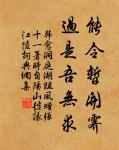 能令暫開霽
過是吾無求
韓愈洞庭湖阻風贈張
十一署時自陽山徙掾
江陵詞典網集